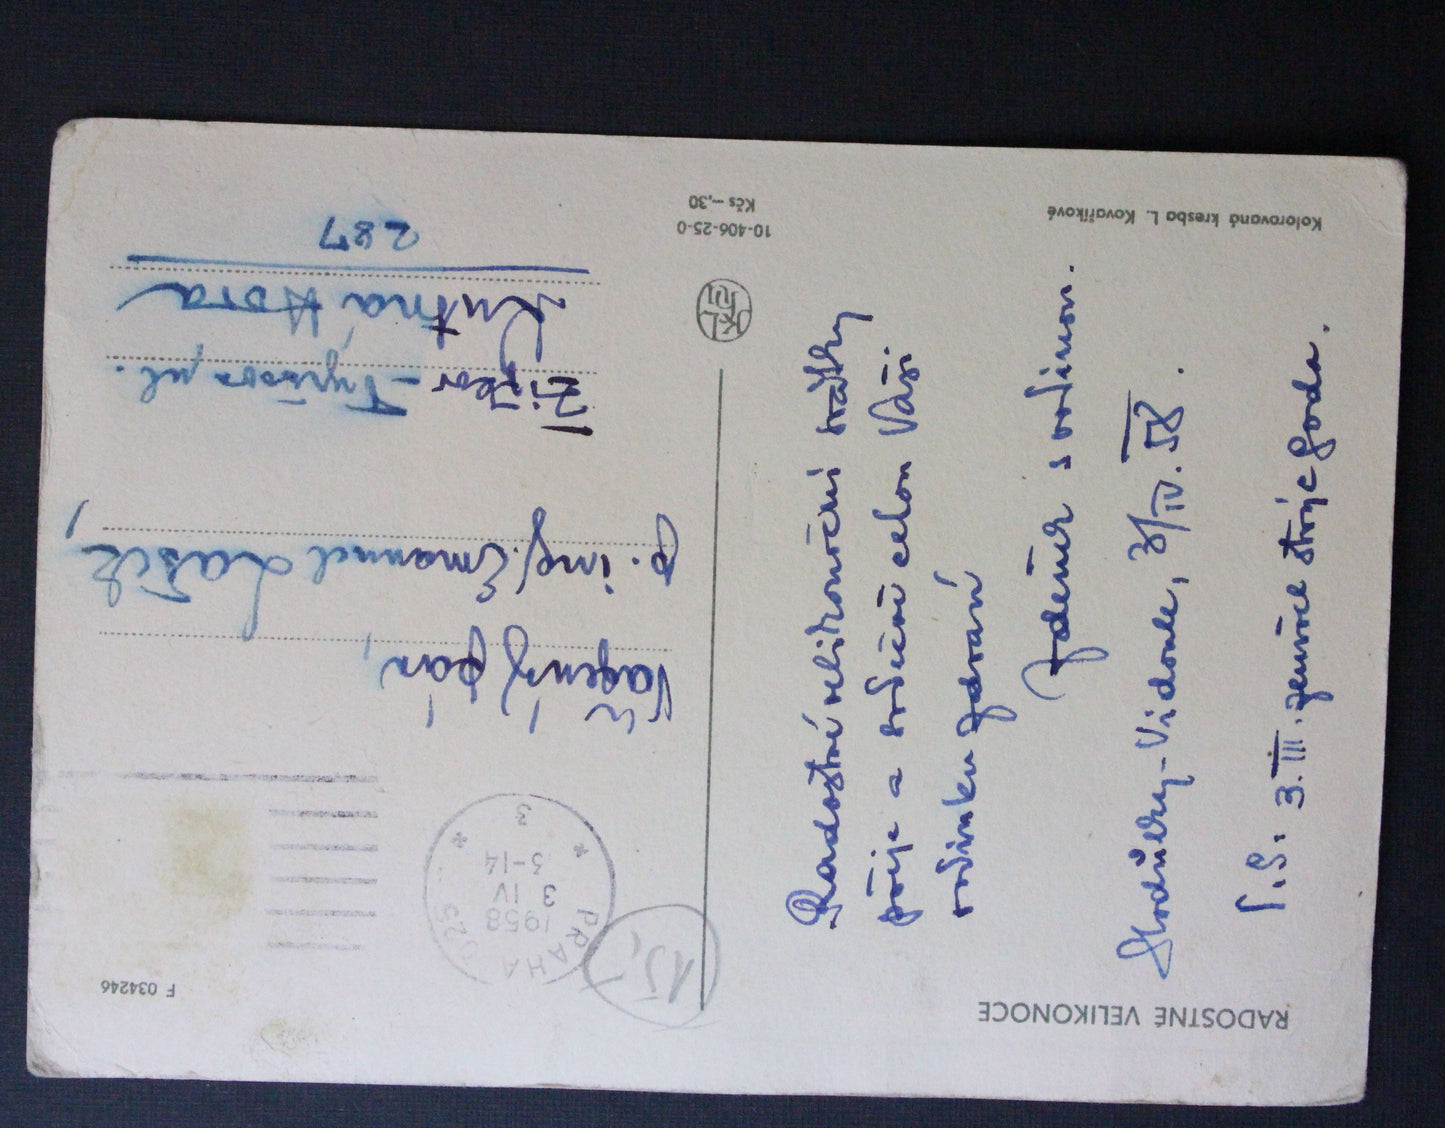 RADOSTNÉ VELIKONOCE
Radostné velikonoční svátky
přeje a srdečně celou Vaši
rodinku zdraví
Zdeněk s rodinou.
Stodůlky-Vidoule, 3/IV.58.
P.S: 3.III. zemřel strýc Honda.
Kolorovaná kresba L. Kovaříkové
10-406-25-0
Kčs –,30
F 034246
PRAHA 025
1958
3 IV
3-14
3
15,-
Vážený pán,
p. ing. Emanuel Lašek,
Žižkov – Tyršova ul.
Kutná Hora
287